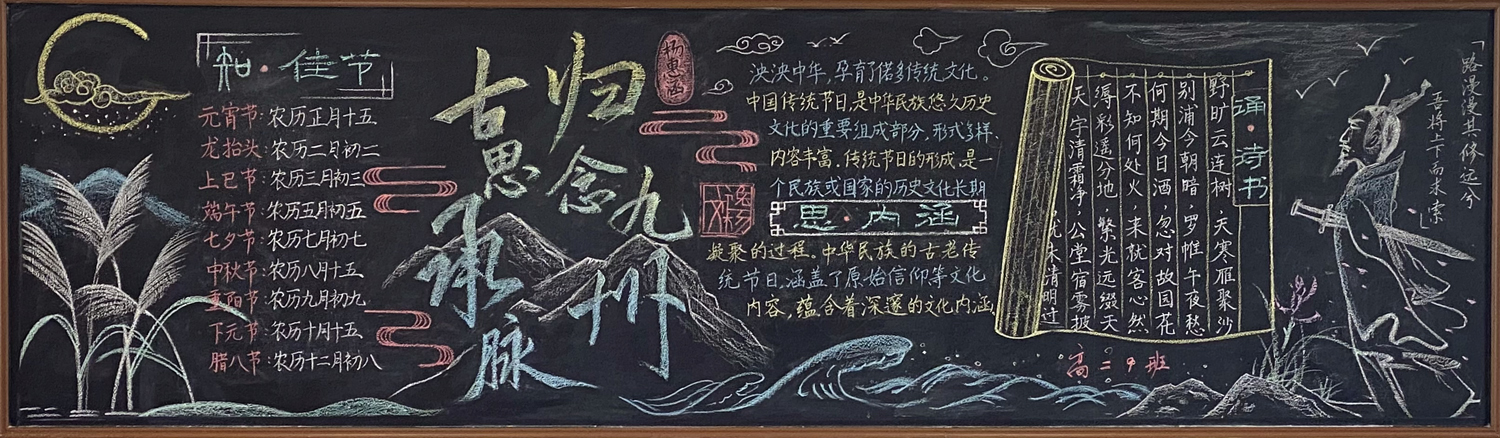 知·佳节
元宵节:农历正月十五
龙抬头:农历二月初二
上巳节:农历三月初三
端午节:农历五月初五
七夕节:农历七月初七
中秋节:农历八月十五
重阳节:农历九月初九
下元节:农历十月十五
腊八节:农历十二月初八
归念九州
古思承脉
泱泱中华,孕育了偌多传统文化。
中国传统节日,是中华民族悠久历史
文化的重要组成部分,形式多样、
内容丰富。传统节日的形成,是一
个民族或国家的历史文化长期
思·内涵
凝聚的过程。中华民族的古老传
统节日,涵盖了原始信仰等文化
内容,蕴含着深邃的文化内涵
诵·诗书
野旷云连树,天寒雁聚沙
别浦今朝暗,罗帷午夜愁
何期今日酒,忽对故国花
不知何处火,来就客心然
缛彩遥分地,繁光远缀天
天宇清霜净,公堂宿雾披
未清明过
高二9班
「路漫漫其修远兮
吾将上下而求索」